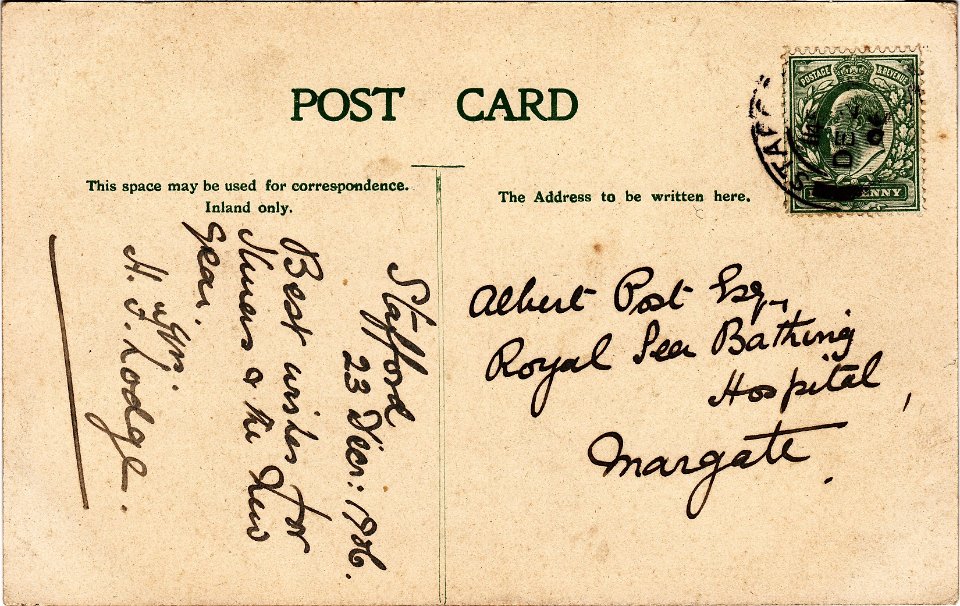 POST CARD
This space may be used for correspondence.
Inland only.
The Address to be written here.
POSTAGE & REVENUE
PENNY
STAFF
DE
06
Stafford
23 Decr: 1906.
Best wishes for
Xmas & the New
Year.
H. J. Lodge.
Albert Post Esq.,
Royal Sea Bathing
Hospital,
Margate.